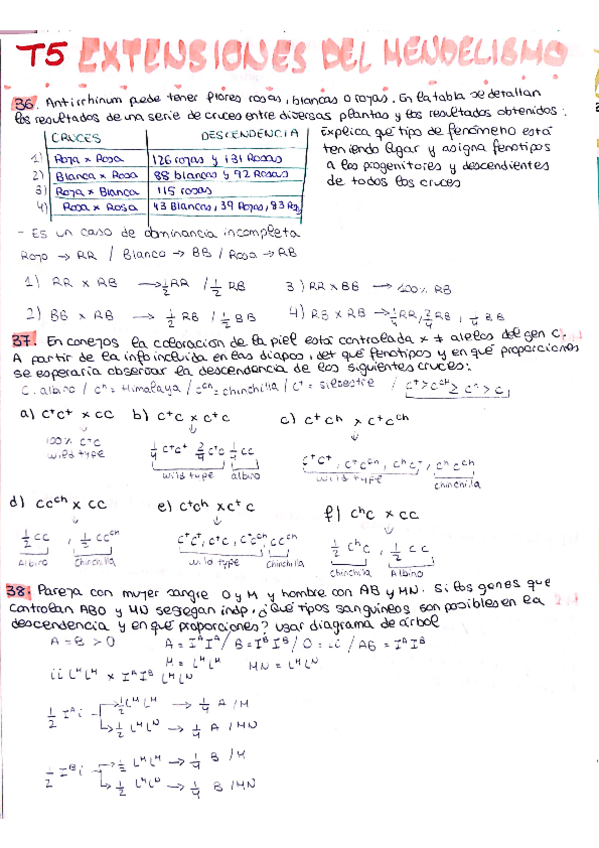 T5 EXTENSIONES DEL MENDELISMO
36. Antirrhinum puede tener flores rosas, blancas o rojas. En la tabla se detallan
los resultados de una serie de cruces entre diversas plantas y los resultados obtenidos:
CRUCES DESCENDENCIA
1) Roja x Rosa 126 rojas y 131 Rosas
2) Blanca x Rosa 88 blancas y 92 Rosas
3) Roja x Blanca 115 rosas
4) Rosa x Rosa 43 Blancas, 39 Rojas, 83 Ros
Explica qué tipo de fenómeno está
teniendo lugar y asigna fenotipos
a los progenitores y descendientes
de todos los cruces
- Es un caso de dominancia incompleta
Rojo → RR / Blanco → BB / Rosa → RB
1) RR x RB → 1/2 RR / 1/2 RB
3) RR x BB → 100% RB
2) BB x RB → 1/2 RB / 1/2 BB
4) RB x RB → 1/4 RR, 2/4 RB, 1/4 BB
37. En conejos la coloración de la piel está controlada x ≠ alelos del gen C.
A partir de la info incluida en las diapos, det qué fenotipos y en qué proporciones
se esperaría observar la descendencia de los siguientes cruces:
C. albino / cʰ = Himalaya / cᶜʰ = chinchilla / c⁺ = silvestre / c⁺ > cᶜʰ ≥ cʰ > c
a) c⁺c⁺ x cc
100% c⁺c
wild type
b) c⁺c x c⁺c
1/4 c⁺c⁺ 2/4 c⁺c 1/4 cc
wild type albino
c) c⁺ch x c⁺cᶜʰ
c⁺c⁺, c⁺cᶜʰ, chc⁺, chcᶜʰ
wild type chinchilla
d) ccᶜʰ x cc
1/2 cc, 1/2 ccᶜʰ
Albino Chinchilla
e) c⁺ch x c⁺c
c⁺c⁺, c⁺c, c⁺cᶜʰ, ccᶜʰ
wild type Chinchilla
f) cʰc x cc
1/2 cʰc, 1/2 cc
Chinchilla Albino
38. Pareja con mujer sangre O y M y hombre con AB y MN. Si los genes que
controlan ABO y MN segregan indp, ¿Qué tipos sanguíneos son posibles en la
descendencia y en qué proporciones? usar diagrama de árbol
A = B > O A = IᴬIᴬ / B = IᴮIᴮ / O = ii / AB = IᴬIᴮ
M = LᴹLᴹ MN = LᴹLᴺ
ii LᴹLᴹ x IᴬIᴮ LᴹLᴺ
1/2 Iᴬi → 1/2 LᴹLᴹ → 1/4 A / M
→ 1/2 LᴹLᴺ → 1/4 A / MN
1/2 Iᴮi → 1/2 LᴹLᴹ → 1/4 B / M
→ 1/2 LᴹLᴺ → 1/4 B / MN